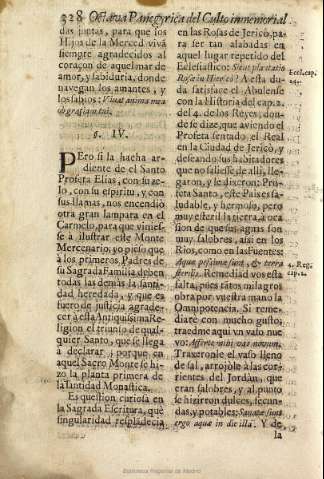 328 Octava Panegyrica del Culto inmemorial
das juntas, para que los
Hijos de la Merced vivã
siempre agradecidos al
coraçon de aquel mar de
amor, y sabiduria, donde
navegan los amantes, y
los sabios: Vivat anima mea
§. IV.
PEro si la hacha ar-
diente de el Santo
Profeta Elias, con su ze-
lo, con su espiritu, y con
sus llamas, nos encendiò
otra gran lampara en el
Carmelo, para que vinies-
se à ilustrar este Monte
Mercenario, yo pienso que
à los primeros Padres de
su Sagrada Familia deben
todas las demàs la santi-
dad heredada, y que es
fuero de justicia agrade-
cer à esta Antiquissima Re-
ligion el triunfo de qual-
quier Santo, que se llega
à declarar, porque en
aquel Sacro Monte se hi-
zo la planta primera de
la santidad Monastica.
Es question curiosa en
la Sagrada Escritura, què
singularidad resplandecia
en las Rosas de Jericò, pa-
ra ser tan alabadas en
aquel lugar repetido del
Eclesiastico: Sicut plãtatio
Rosæ in Hiericò? A esta du-
da satisface el Abulense
con la Historia del cap. 2.
del 4. de los Reyes, don-
de se dize, que aviendo el
Profeta sentado el Real
en la Ciudad de Jericò, y
deseando sus habitadores
que no saliesse de alli, lle-
garon, y le dixeron: Pro-
feta Santo, este Pais es sa-
ludable, y hermoso, pero
muy esteril la tierra, à oca-
sion de que sus aguas son
muy salobres, assi en los
Rios, como en las Fuentes:
Aquæ pessimæ sunt, & terra
sterilis. Remediad vos esta
falta, pues tãtos milagros
obra por vuestra mano la
Omnipotencia. Si reme-
diarè con mucho gusto,
traedme aqui vn vaso nue-
vo: Afferte mihi vas novum.
Traxeronle el vaso lleno
de sal, arrojòle à las cor-
rientes del Jordàn, que
eran salobres, y al punto
se hizieron dulces, fecun-
das, y potables: Sanatæ sunt
ergo aquæ in die illa. Y de
la
Eccl. cap.
24.
4. Reg.
cap. 2.
Biblioteca Regional de Madrid